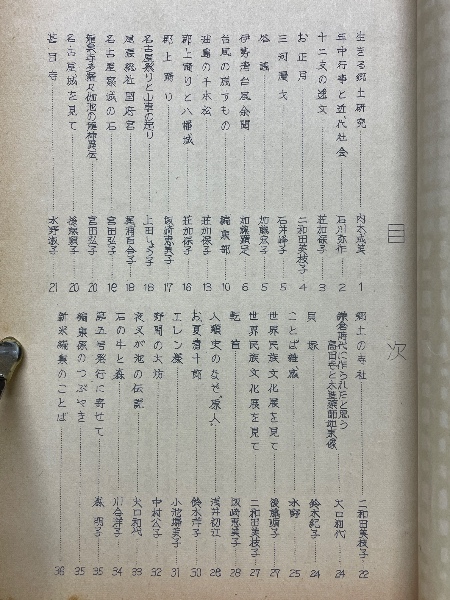 目次
生きる郷土研究 内木茂美 1
年中行事と近代社会 石川弥作 2
十二支の逸文 並加保子 3
お正月 二和田英枝子 4
三河漫文 石井峰子 5
伊勢湾台風余聞 加藤鏡定 6
台風の残すもの 編集部 10
油島の千本松 並加保子 13
郡上踊りと八幡城 並加保子 16
郡上踊り 坂崎恵美子 17
名古屋祭りと山車の起り 上田しづ子 18
尾張総社国府宮 18
名古屋築城の石 宮田弘子 18
宮田弘子 20
名古屋城を見て 後藤順子 20
甚目寺 水野淑子 21
郷土の寺社 二和田英枝子 22
鎌倉時代に作られたと思う
高田寺と木造薬師如来像 大口和代 24
貝塚 鈴木紀子 24
ことば雑感 水野 25
世界民族文化展を見て 後藤順子 27
世界民族文化展を見て 二和田英枝子 27
乾杏 坂崎恵美子 28
人類史のなぞ"原人" 浅井初江 28
お夏清十郎 鈴木洋子 30
エレン媛 小池勝英子 31
野間の大坊 中村公子 32
夜叉が池の伝説 大口和代 33
石の牛と森 川合洋子 34
第五号発行に寄せて 森明子 35
編集後のつぶやき 35
新米編集のことば 36